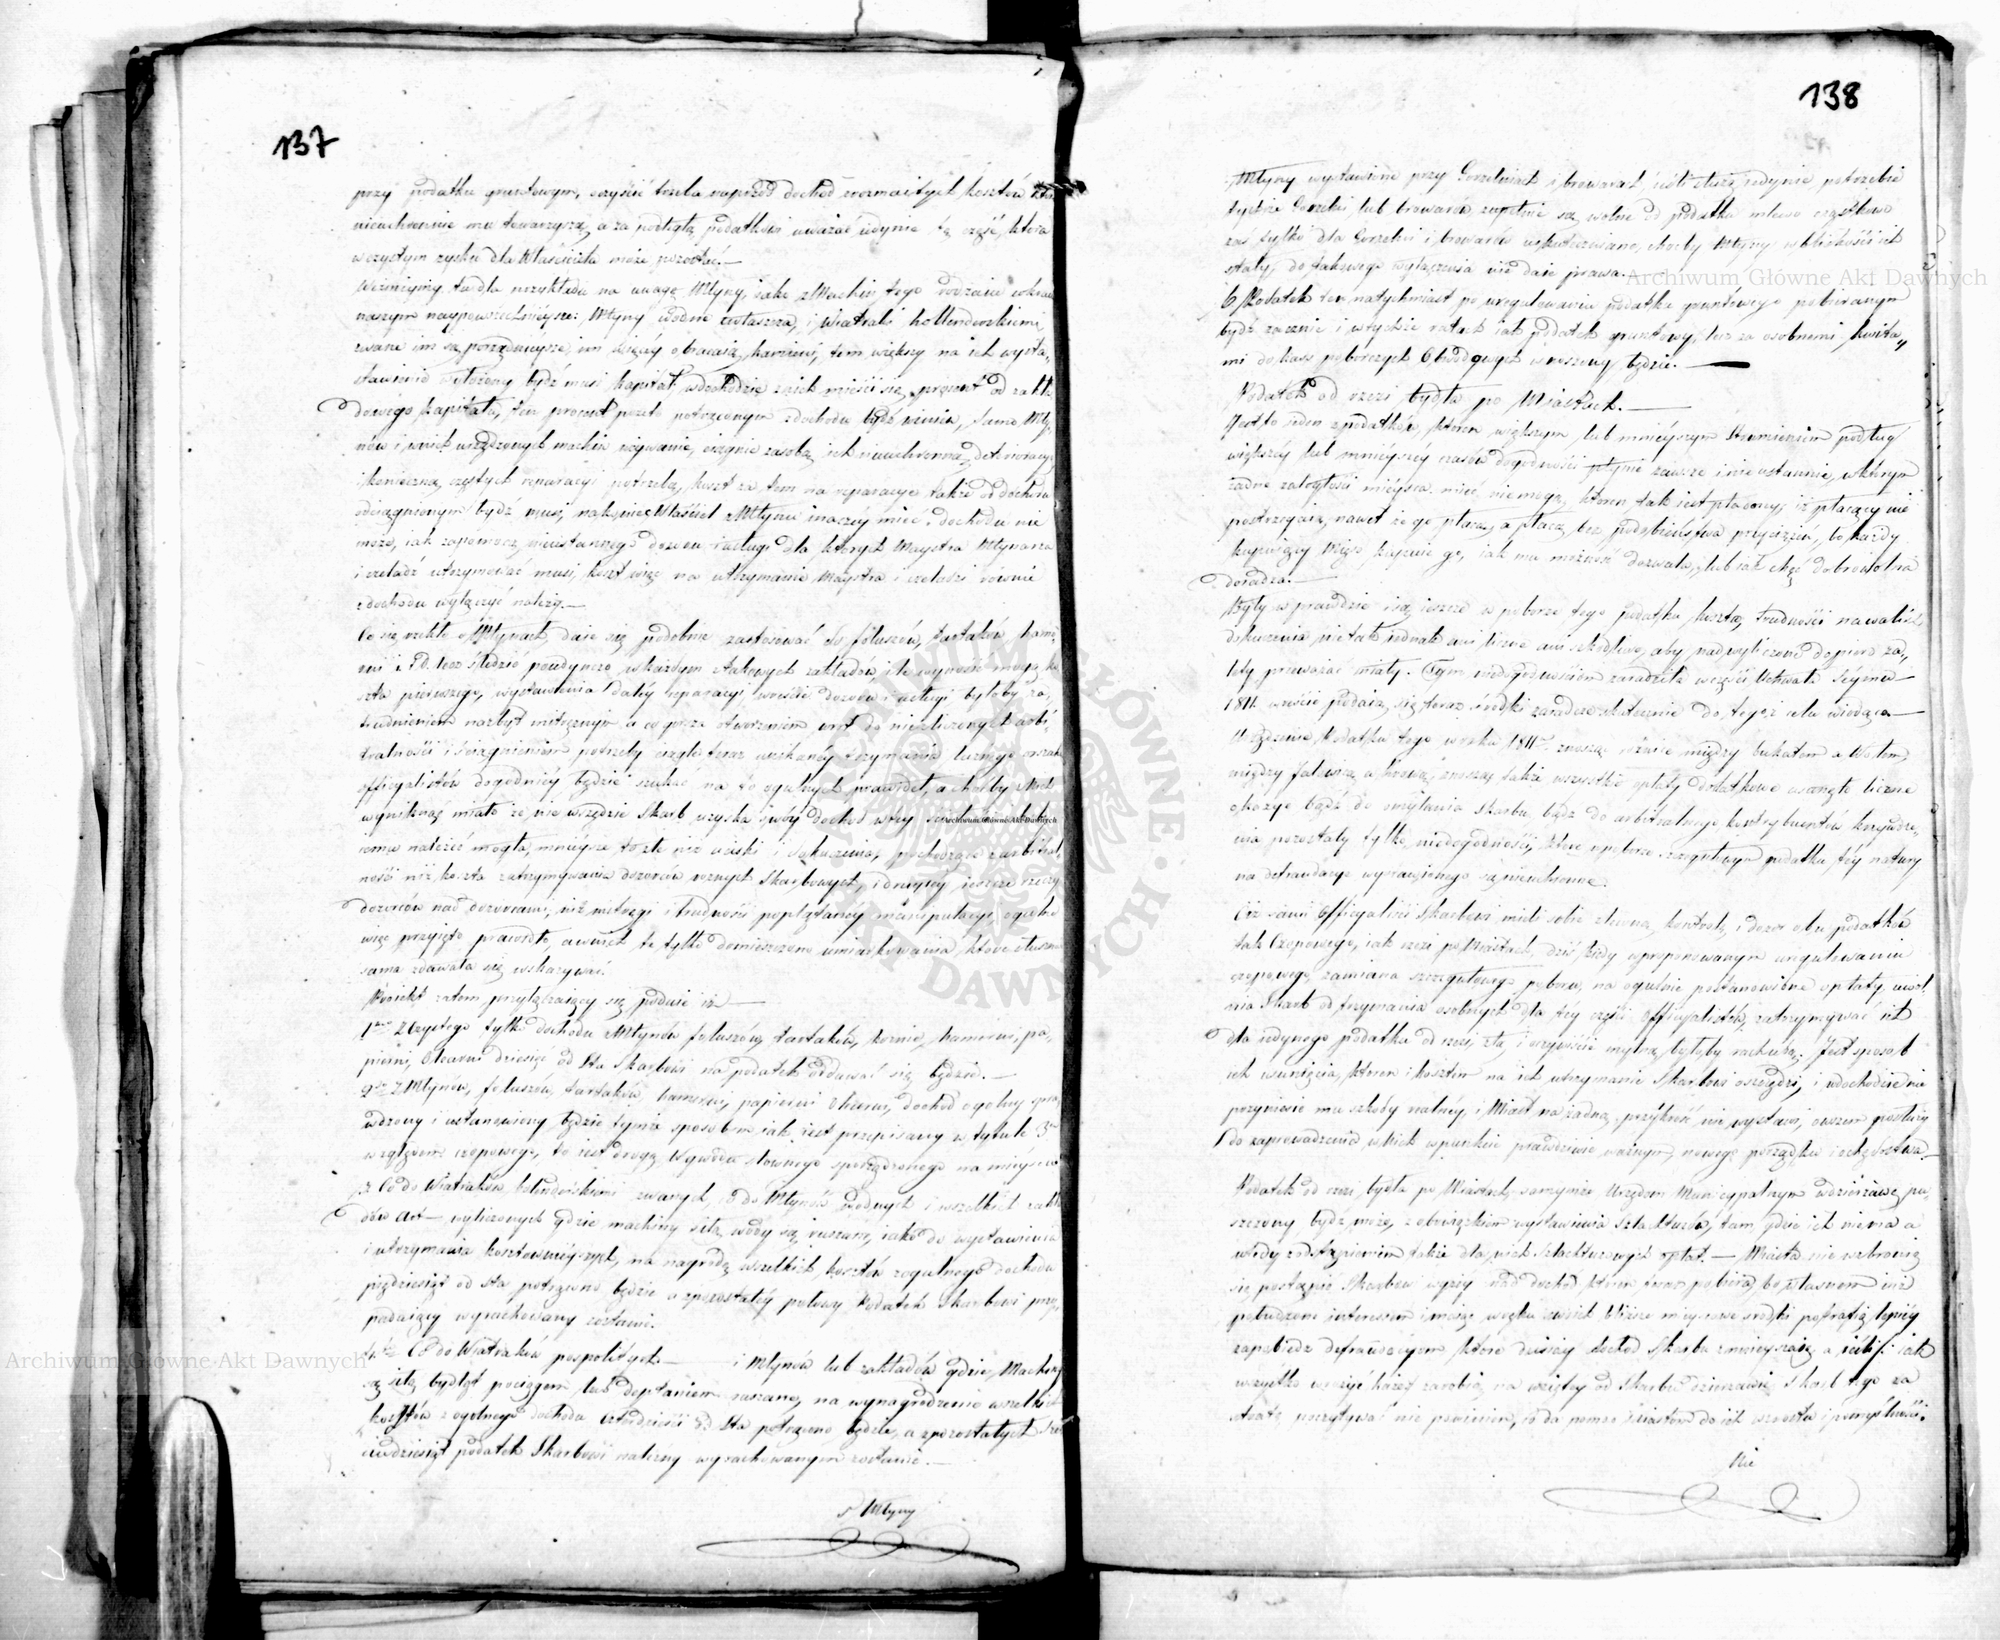 137
przy podatku gruntowym, oczyścić trzeba naprzód dochód z rozmaitych kosztów
nieuchronnie mu towarzyszą, a za podległą podatkowi uważać iedynie tę część, która
w czystym zysku dla Właściciela może pozostać. —
Weźmieymy tu dla przykładu na uwagę Młyny, iako z Machin tego rodzaiu w kraiu
naszym naypowszechnieysze: Młyny wodne zwłaszcza, i Wiatraki hollenderskiemi
zwane im są porządnieysze, im więcéy obracaią kamieni, tem większy na ich wysta-
wienie wyłożony bydź musi kapitał, w dochodzie z nich mieści się procent od zakła-
dowego kapitału, ten procent przeto potrąconym z dochodu bydź winien, samo Mły-
nów i w nich urządzonych machin używanie, ciągnie za sobą ich nieuchronną deterioracyę
i konieczną częstych reparacyi potrzebę, koszt za tem na reparacye także od dochodu
odciągnionym bydź musi, nakoniec Właściciel z Młyna inaczéy mieć dochodu nie
może, iak za pomocą nieustannego dozoru i usługi dla których Maystra Młynarza
i czeladź utrzymywać musi, koszt więc na utrzymanie Maystra i czeladzi równie
z dochodu wyłączyć należy. —
Co się rzekło o Młynach, daie się podobnie zastosować do foluszów, tartaków, hamer-
ni i t. d. lecz śledzić poiedynczo w każdym z takowych zakładów, ile wynosić mogą ko-
szta pierwszego wystawienia daléy reparacyi, wreście dozoru i usługi byłoby za-
trudnieniem nazbyt mitrężnym a co gorsza otworzeniem wrót do niezliczonych arbi-
tralności i ściągnieniem potrzeby ciągle teraz unikanéy trzymania licznego orszaku
officyalistów dogodniéy będzie szukać na to ogólnych prawideł, a choćby z nich
wyniknąć miało że nie wszędzie Skarb uzyska swóy dochód
iemu należeć mogła, mnieysze to złe niż uciski i dokuczenia, pochodzące z arbitral-
ności niż koszta zatrzymywania dozorców nowych Skarbowych, i drugiéy ieszcze rzeszy
dozorców nad dozorcami, niż mitręgi i trudności poplątanéy manipulacyi, ogólne
więc przyięto prawidła, a w nich te tylko domieszczono umiarkowania które słuszność
sama zdawała się wskazywać.
Proiekt zatem przyłączaiący się podaie iż —
1mo Z Czystego tylko dochodu z Młynów foluszów, tartaków, kuźnic, hamerni, pa-
pierni, Olearni dziesięć od Sta Skarbowi na podatek oddawać się będzie. —
2do Z Młynów, foluszów, tartaków, hamerni, papierni Olearni, dochód ogólny spraw-
dzony i ustanowiony będzie tymże sposobem iak iest przepisany w tytule 3m
względem czopowego, to iest drogą wywodu słownego sporządzonego na mieyscu
3. Co do Wiatraków holenderskiemi zwanych co do Młynów wodnych i wszelkich zakła-
dów Art — wyliczonych gdzie machiny siłą wody są ruszane, iako do wystawienia
i utrzymania kosztownieyszych, na nagrodę wszelkich kosztów z ogólnego dochodu
pięćdziesiąt od sta potrącono będzie a z pozostałéy połowy Podatek Skarbowi przy-
padaiący wyrachowany zostanie.
4to Co do Wiatraków pospolitych — i Młynów lub zakładów gdzie Machiny
są siłą bydląt pociągem lub deptaniem ruszane, na wynagrodzenie wszelkich
kosztów z ogólnego dochodu czterdzieści od Sta potrącono będzie, a z pozostałych sze-
śćdziesiąt podatek Skarbowi należny wyrachowanym zostanie. —
5 Młyny
138
Młyny wystawione przy Gorzelniach i browarach ieśli służą iedynie potrzebie
tychże Gorzelni lub browarów zupełnie są wolne od podatku mlewo cząstkowo
zaś tylko dla Gorzelni i browarów uskuteczniane, choćby Młyny w bliskości ich
stały, do takowego wyłączenia nie daie prawa.
6 Podatek ten natychmiast po uregulowaniu podatku gruntowego pobieranym
bydź zacznie i w tychże ratach iak podatek gruntowy, lecz za osobnemi kwita-
mi do kass poborczych Obwodowych wnoszony będzie. —
Podatek od rzezi bydła po Miastach. —
Jest to ieden z podatków, który większym lub mnieyszym strumieniem podług
większéy lub mnieyszéy czasów dogodności płynie zawsze i nieustannie, w którym
żadne zaległości mieysca mieć nie mogą, który tak iest płacony, iż płacący nie
postrzegaią, nawet że go płacą, a płacą bez podobieństwa przyciążeń, bo każdy
kupuiący Mięso kupuie go, iak mu możność dozwala, lub iak chęć dobrowolna
doradza. —
Były w prawdzie i są ieszcze w poborze tego podatku koszta, trudności nawałość
dokuczenia nie tak iednak ani liczne ani szkodliwe, aby nad wyliczone dopiero zal-
lety przeważać miały. Tym niedogodnościom zaradziła w części Uchwała Seymu
1811. a wreście podaią się teraz środki zaradcze skutecznie do tegoż celu wiodące —
Urządzenie Podatku tego w roku 1811m znosząc różnice między bukatem a Wołem
między Jałowicą a krową, znosząc także wszystkie opłaty dodatkowe usunęło liczne
okazye bądź do omylenia Skarbu, bądź do arbitralnego kontrybuentów krzywdze-
nia pozostały tylko niedogodności, które w poborze szczegółowym podatku téy natury
na defraudacye wyprawionego są nieuchronne.
Ciż sami Officyaliści Skarbowi mieli sobie zleconą kontrolę i dozór obu podatków
tak Czopowego, iak rzezi po Miastach, dziś kiedy w proponowanym uregulowaniu
czopowego zamiana szczegółowego poboru, na ogólnie postanowione opłaty, uwol-
nia Skarb od trzymania osobnych dla téy części Officyalistów, zatrzymywać ich
dla iedynego podatku od rzezi, zła i oczywiście mylna byłaby rachuba; Jest sposób
ich usunięcia, który i kosztem na ich utrzymanie Skarbowi oszczędzi, i w dochodzie nie
przyniesie mu szkody żadnéy i Miast na żadną przykrość nie wystawi, owszem posłuży
do zaprowadzenia w nich w punkcie prawdziwie ważnym, nowego porządku i ochędostwa. —
Podatek od rzezi bydła po Miastach, samymże Urzędom Municypalnym w dzierżawę pu-
szczony bydź może, z obowiązkiem wystawienia szlachtuzów, tam gdzie ich niema a
wtedy z odstąpieniem także dla nich szlachtuzowych opłat — Miasta nie wzbronią
się postąpić Skarbowi wyżéy nad dochód który teraz pobiera, bo własnym iuż
pobudzone interessem i maiąc w ręku swoich bliższe mieyscowe środki potrafią lepiéy
zapobiedz defraudacyom, które dzisiay dochód Skarbu zmnieyszaią, a ieśli/: iak
wszystko wróżyć każe/ zarobią na wziętéy od Skarbu dzierżawie, Skarb tego za
stratę poczytywać nie powinien, co da pomoc Miastom do ich wzrostu i pomyślności.
Nie
Archiwum Główne Akt Dawnych
Archiwum Główne Akt Dawnych
Archiwum Główne Akt Dawnych